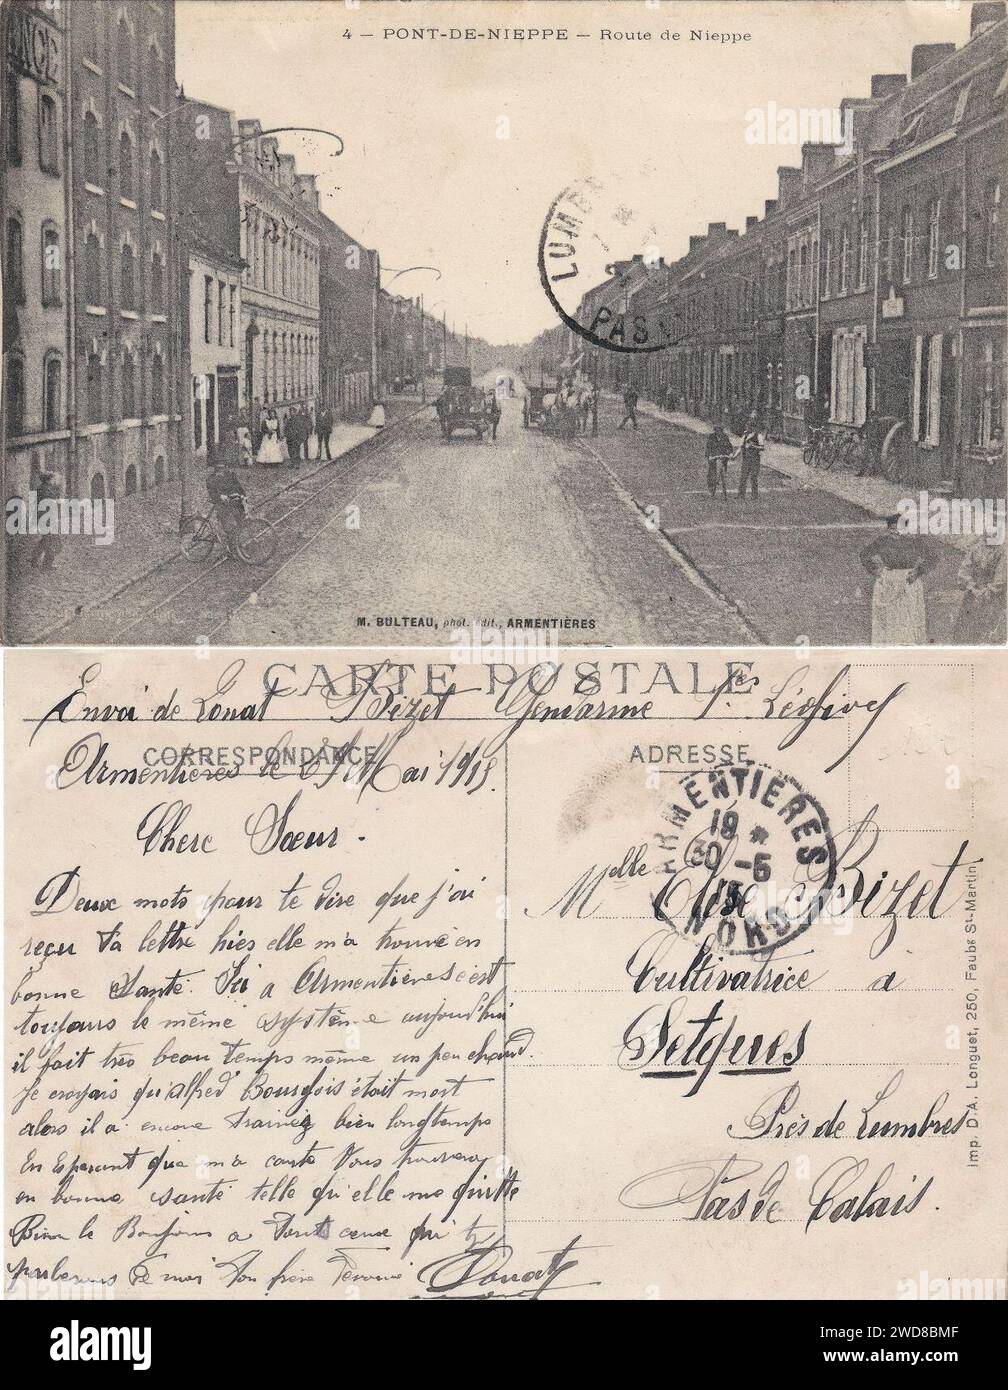 4 — PONT-DE-NIEPPE — Route de Nieppe
NCE
LUMB
PAS
M. BULTEAU, phot. édit., ARMENTIÈRES
CARTE POSTALE
Envoi de Donat Bizet Gendarme
CORRESPONDANCE
ADRESSE
Armentières le Mai 1915
ARMENTIERES
19 *
30 -5
15
NORD
Chere Sœur -
Deux mots pour te dire que j'ai
reçu ta lettre hier elle m'a trouvé en
bonne Santé. Ici a Armentières c'est
toujours le même système aujourd'hui
il fait très beau temps même un peu chaud.
Je croyais qu'alfred Bourgois était mort
alors il a encore trainez bien longtemps
En Esperant que m'a carte Vous trouvera
en bonne santé telle qu'elle me quitte
Bien le Bonjour a tout ceux qui te
parlerons de moi Ton frère Donat
Melle Elise Bizet
Cultivatrice à
Setques
Près de Lumbres
Pas de Calais.
Imp. D.A. Longuet, 250, Faubg St-Martin
alamy
Image ID: 2WD8BMF
www.alamy.com